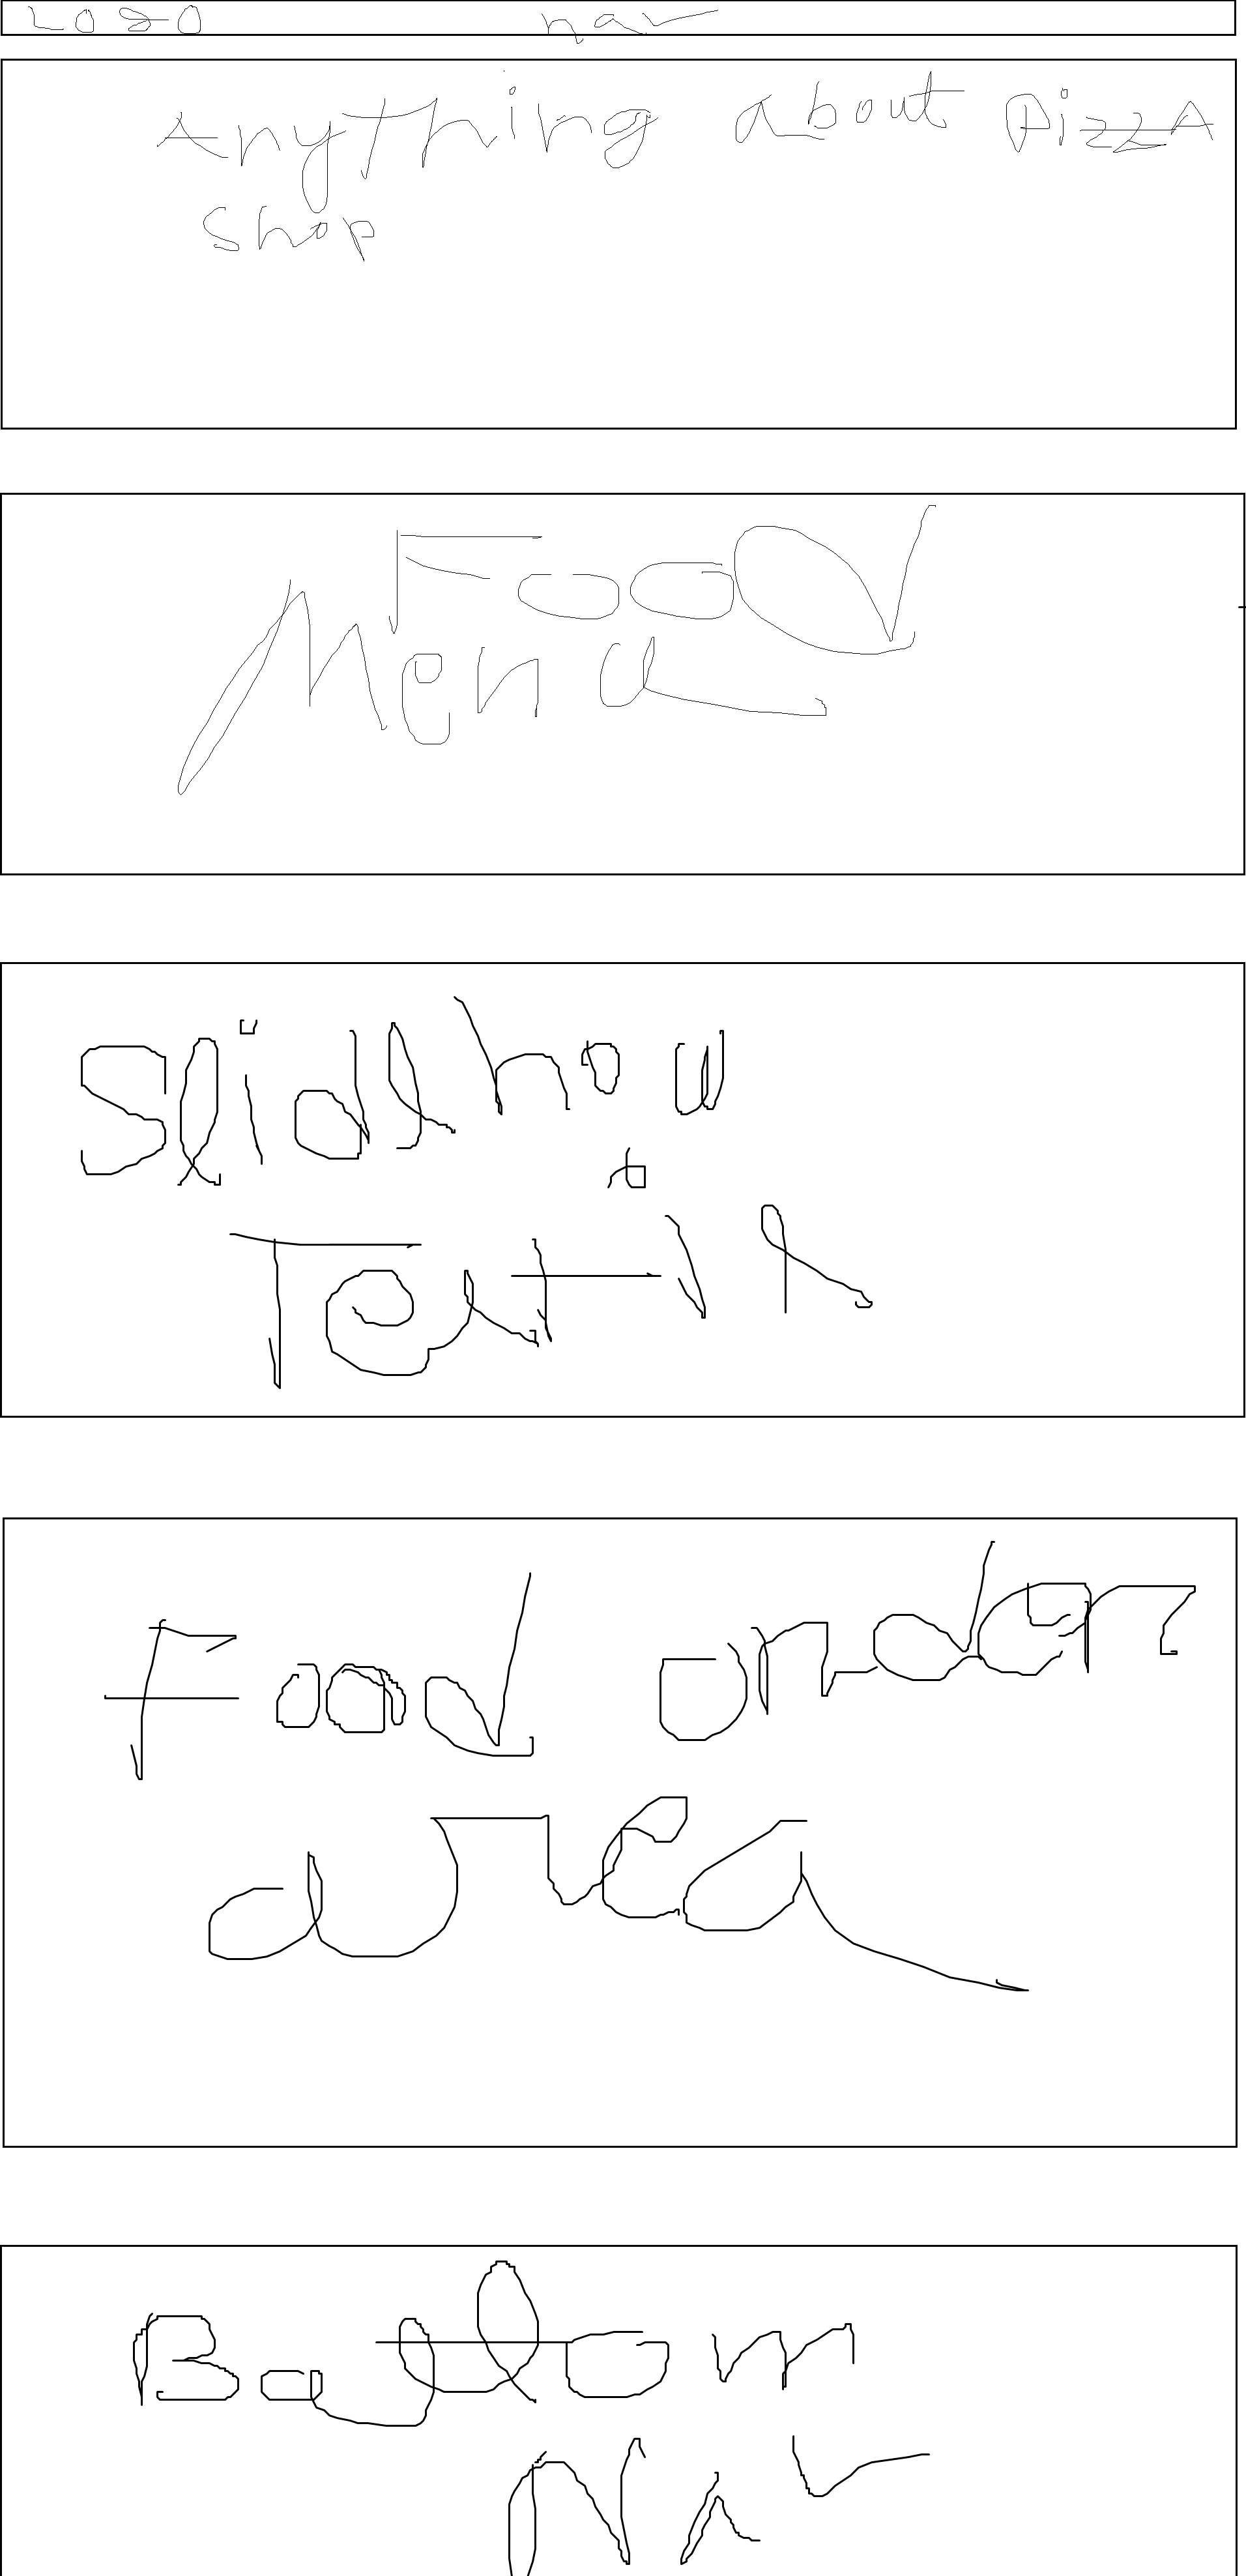 Logo nav
Anything about Pizza
Shop
Food
Menu
Food order
area
Bottom
Nav